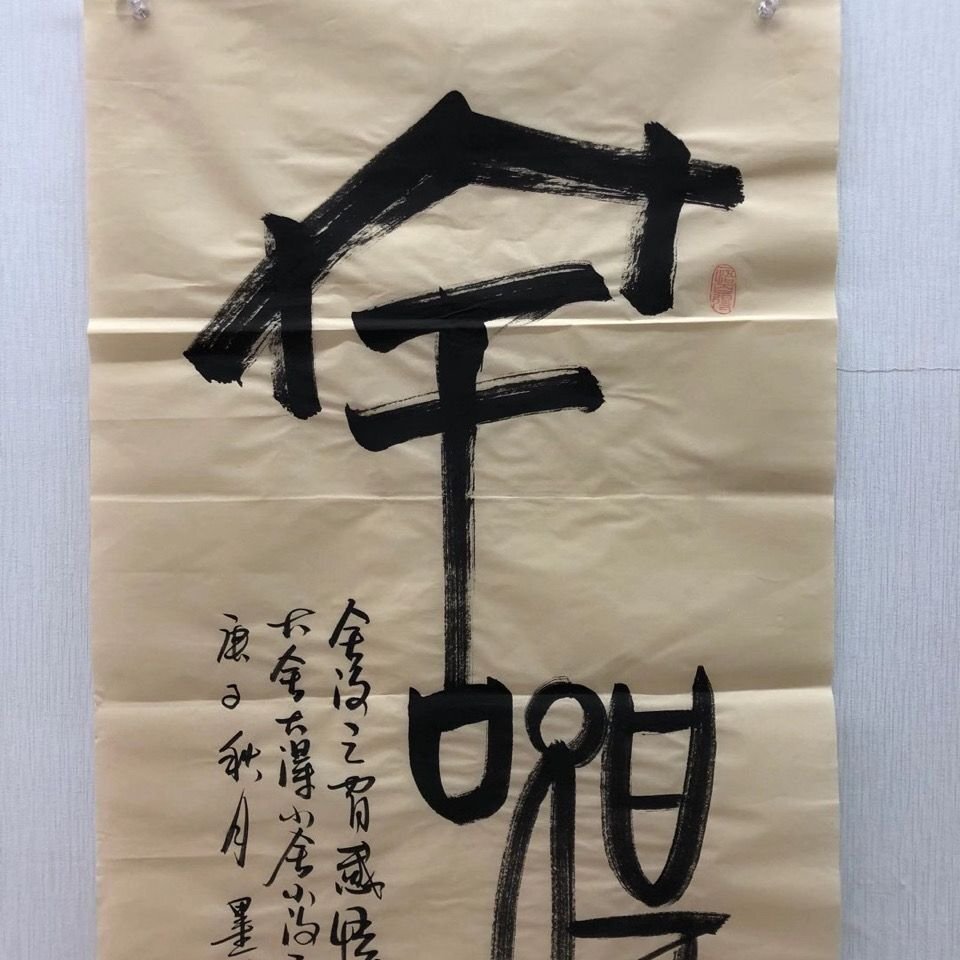 舍得
舍得之 感悟
大舍大得小舍小得
庚子秋月墨